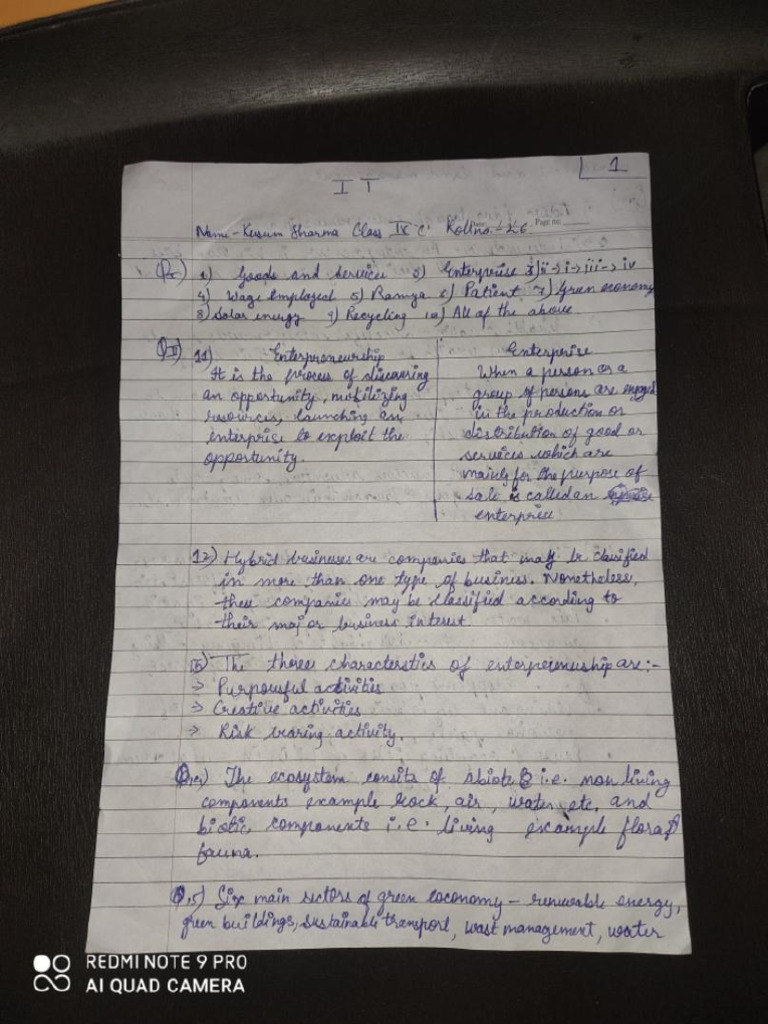 1
I T
Name - Kusum Sharma Class IX 'C' Roll no. - 26 Page no.
1) Goods and services 2) Enterprise 3) ii -> i -> iii -> iv
4) Wage employed 5) Ramya 6) Patient 7) Green economy
8) Solar energy 9) Recycling 10) All of the above
11) Enterpreneurship
It is the process of discovering
an opportunity, mobilizing
resources, launching an
enterprise to exploit the
opportunity.
Enterprise
When a person or a
group of persons are engaged
in the production or
distribution of good or
services which are
mainly for the purpose of
sale is called an
enterprise
12) Hybrid businesses are companies that may be classified
in more than one type of business. Nonetheless,
these companies may be classified according to
their major business interest.
The three characterstics of enterpreneuship are:-
-> Purposeful activities
-> Creative activities
-> Risk bearing activity.
The ecosystem consits of abiotic i.e. non living
components example rock, air, water, etc, and
biotic components i.e. living example flora &
fauna.
Six main sectors of green economy - renewable energy,
green buildings, sustainable transport, wast management, water
REDMI NOTE 9 PRO
AI QUAD CAMERA